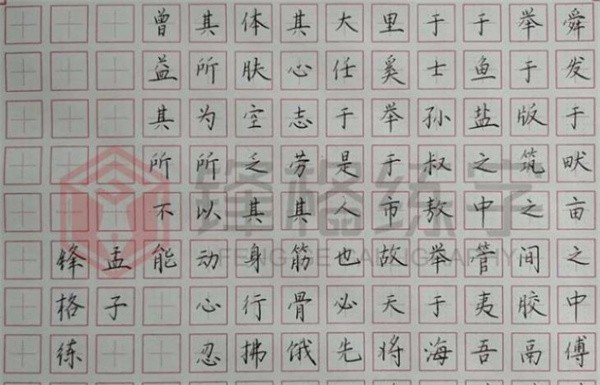 舜发于畎亩之中傅
举于版筑之间胶鬲
于鱼盐之中管夷吾
于士孙叔敖举于海
里奚举于市故天将
大任于是人也必先
其心志劳其筋骨饿
体肤空乏其身行拂
其所为所以动心忍
曾益其所不能
孟子
锋格练
锋格练字
FENGGE CALLIGRAPHY